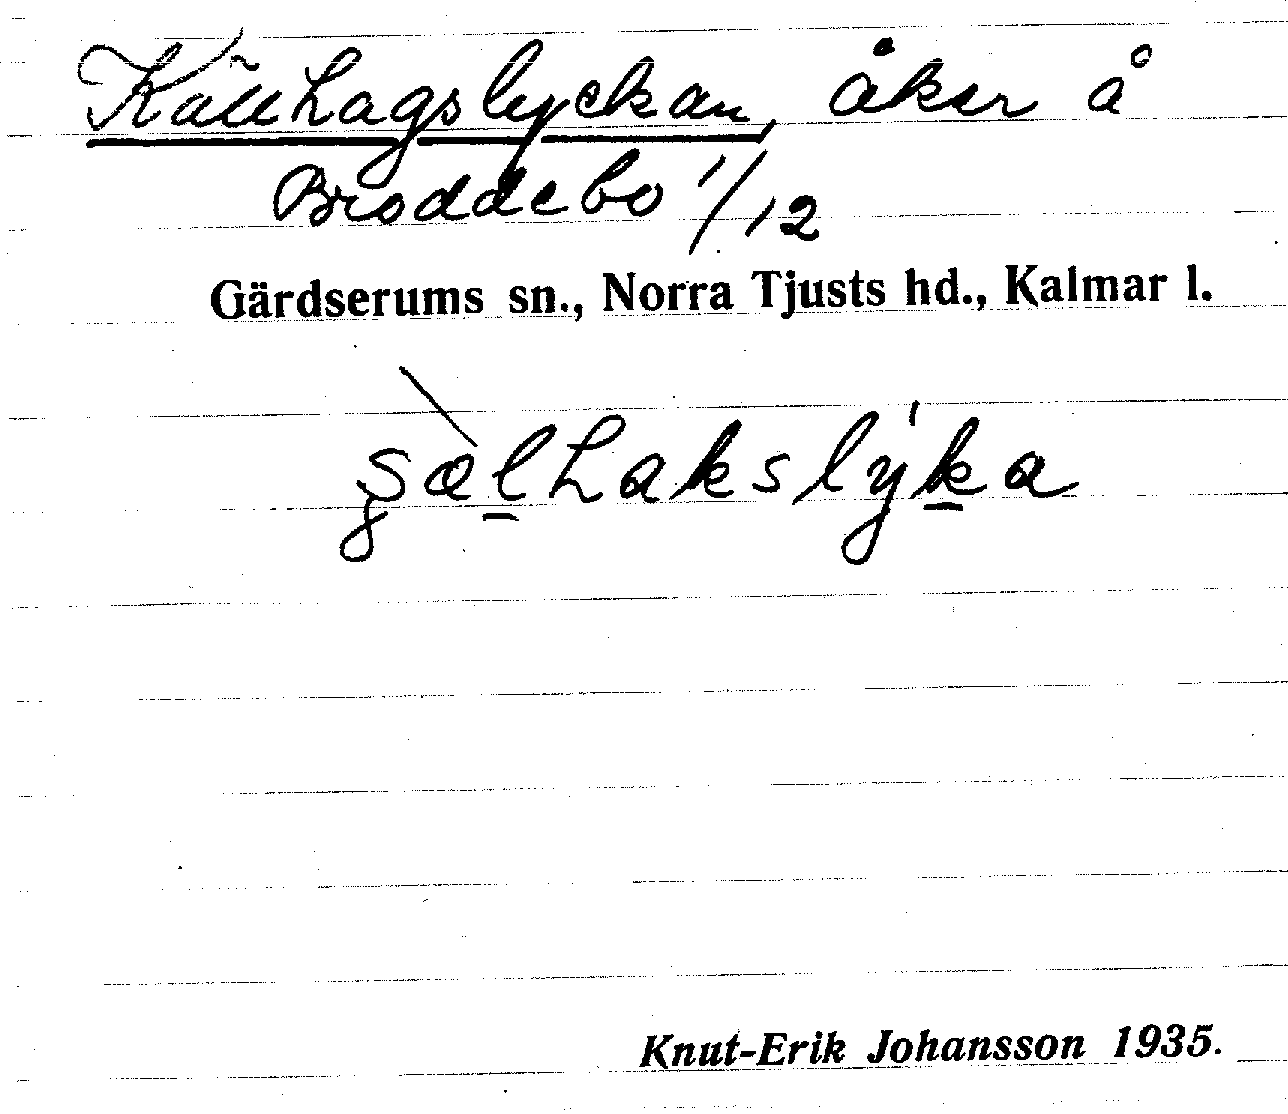 Källhagslyckan, åker å
Broddebo 1/12
Gärdserums sn., Norra Tjusts hd., Kalmar l.
s̨æ̀l̲hakslýk̲a
Knut-Erik Johansson 1935.